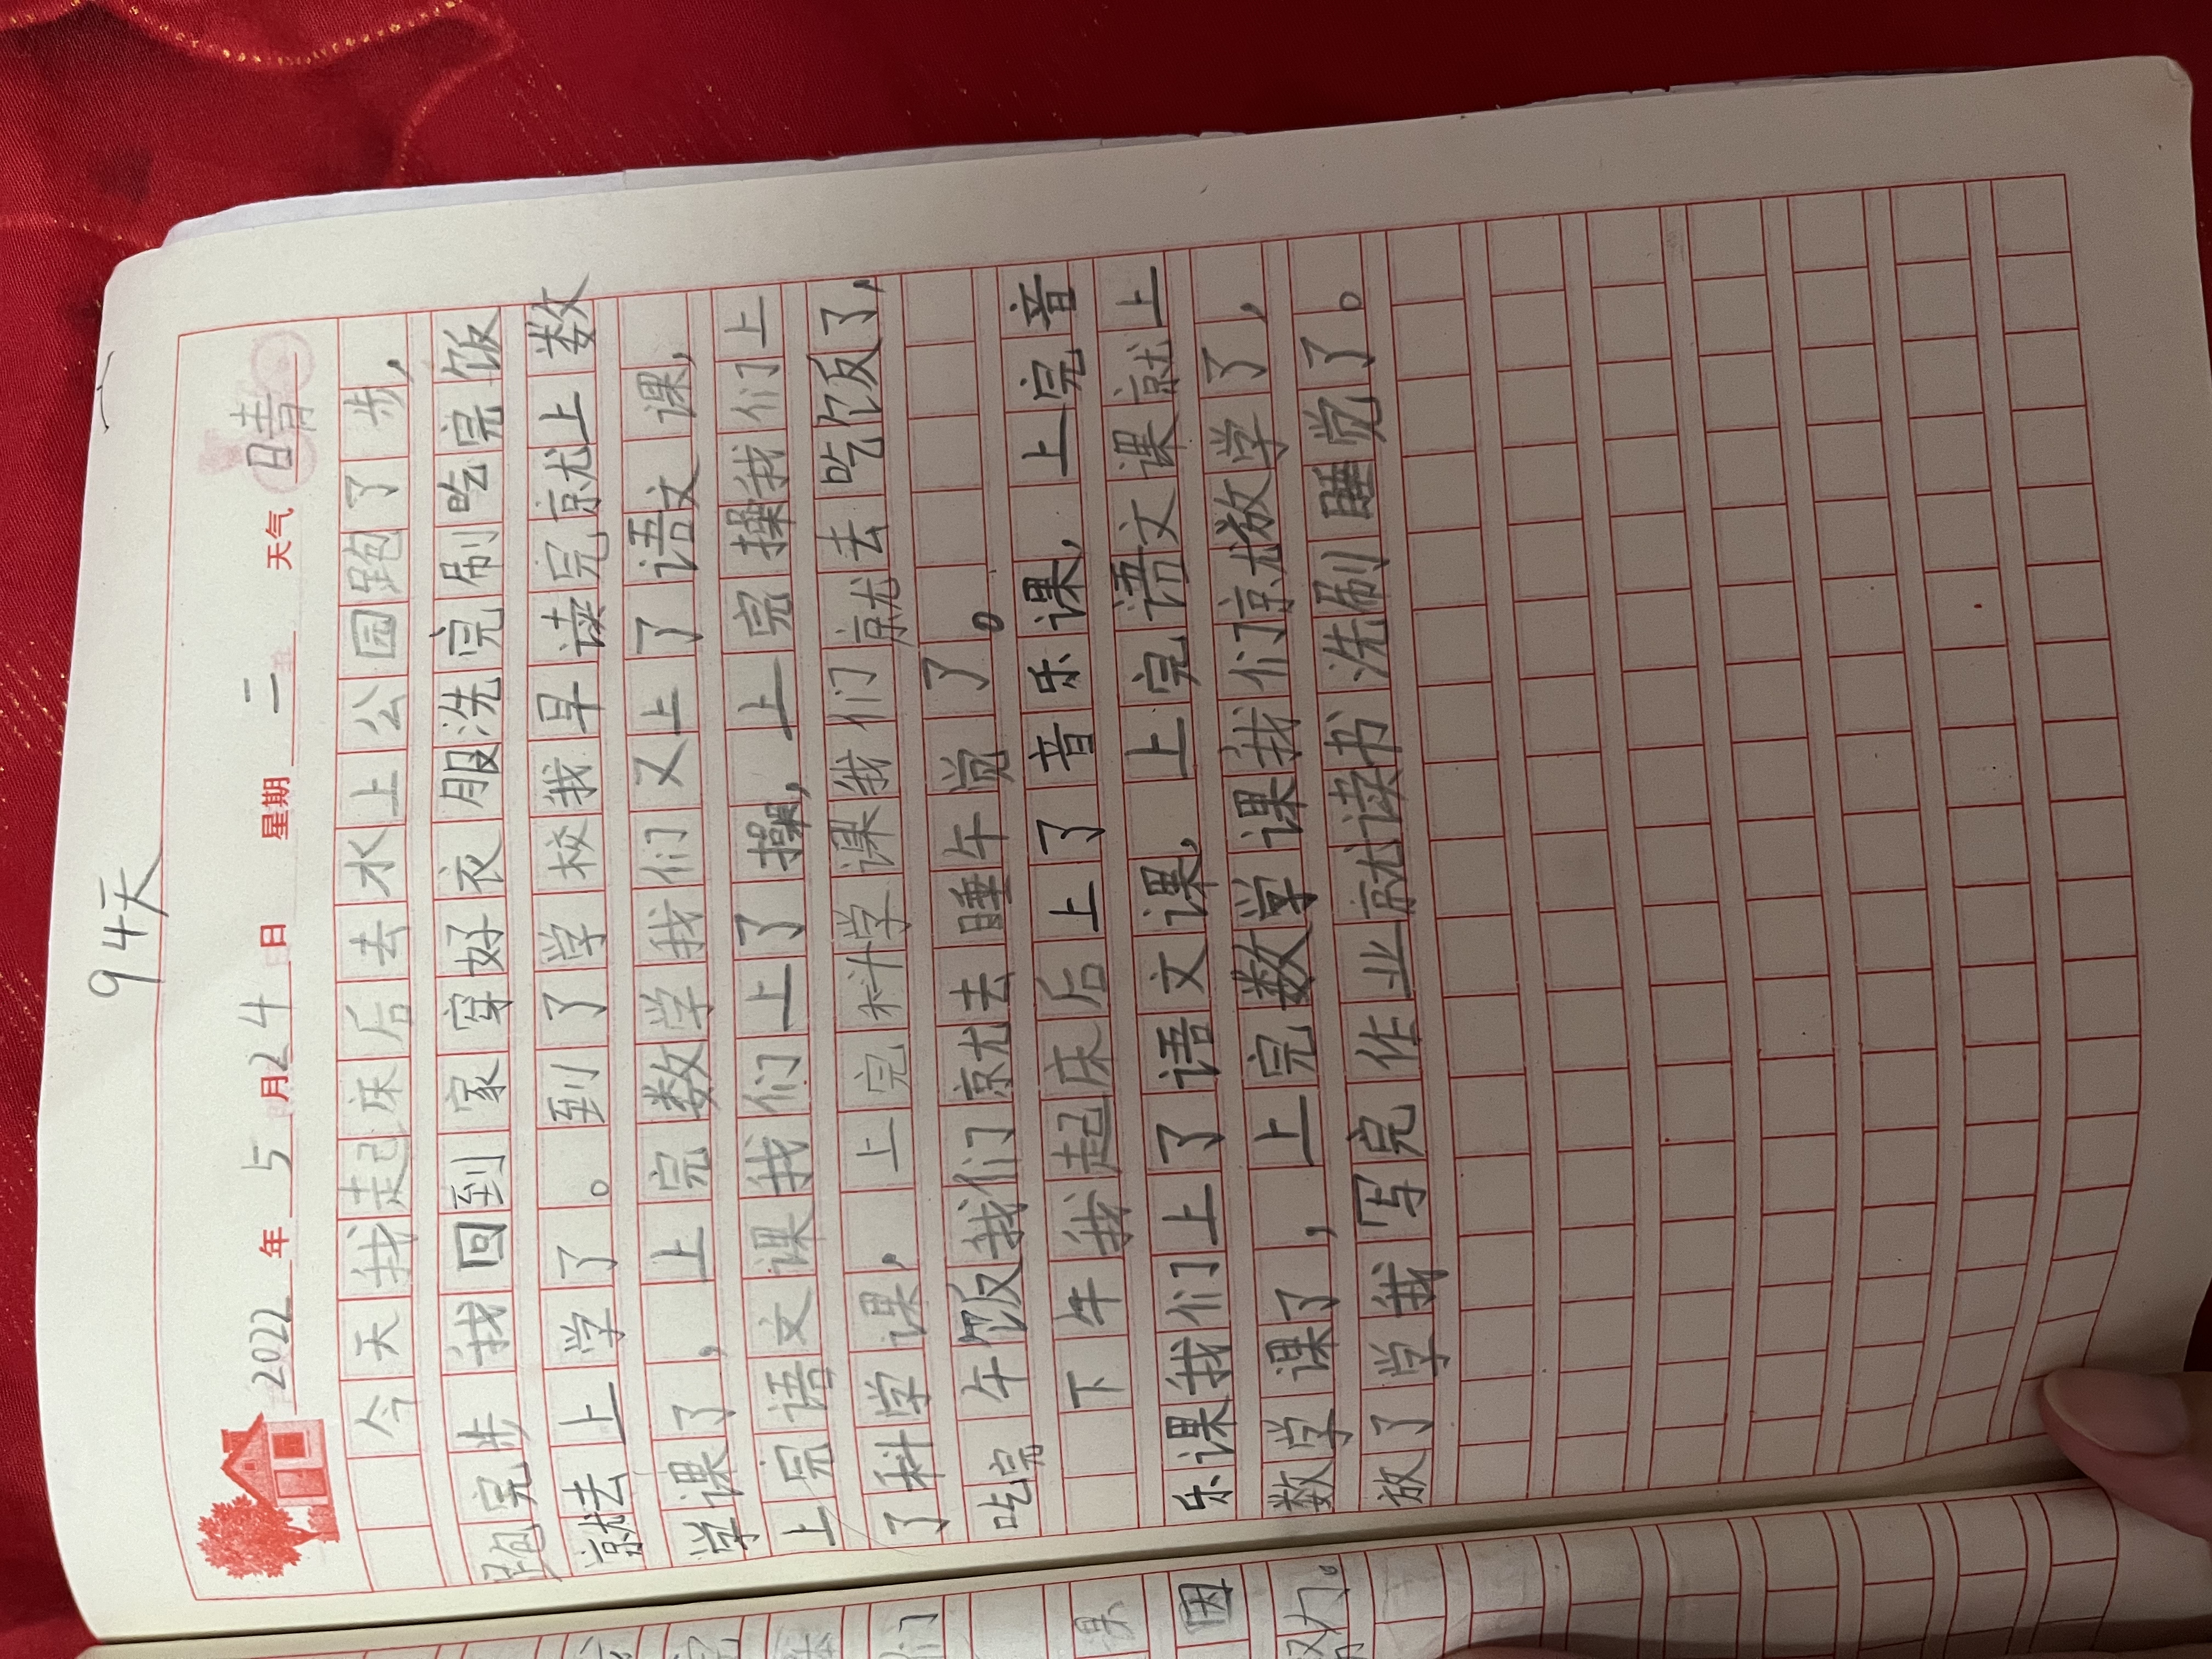 94天
2022年5月24日 星期二 天气晴
今天我起床后去水上公园跑了步，
跑完步我回到家穿好衣服洗完刷吃完饭
就去上学了。到了学校我早读完就上数
学课了，上完数学我们又上了语文课，
上完语文课我们上了操，上完操我们上
了科学课，上完科学课我们就去吃饭了，
吃完午饭我们就去睡午觉了。
下午我起床后上了音乐课，上完音
乐课我们上了语文课，上完语文课就上
数学课了，上完数学课我们就放学了，
放了学我写完作业就读书洗刷睡觉了。
们
课
因